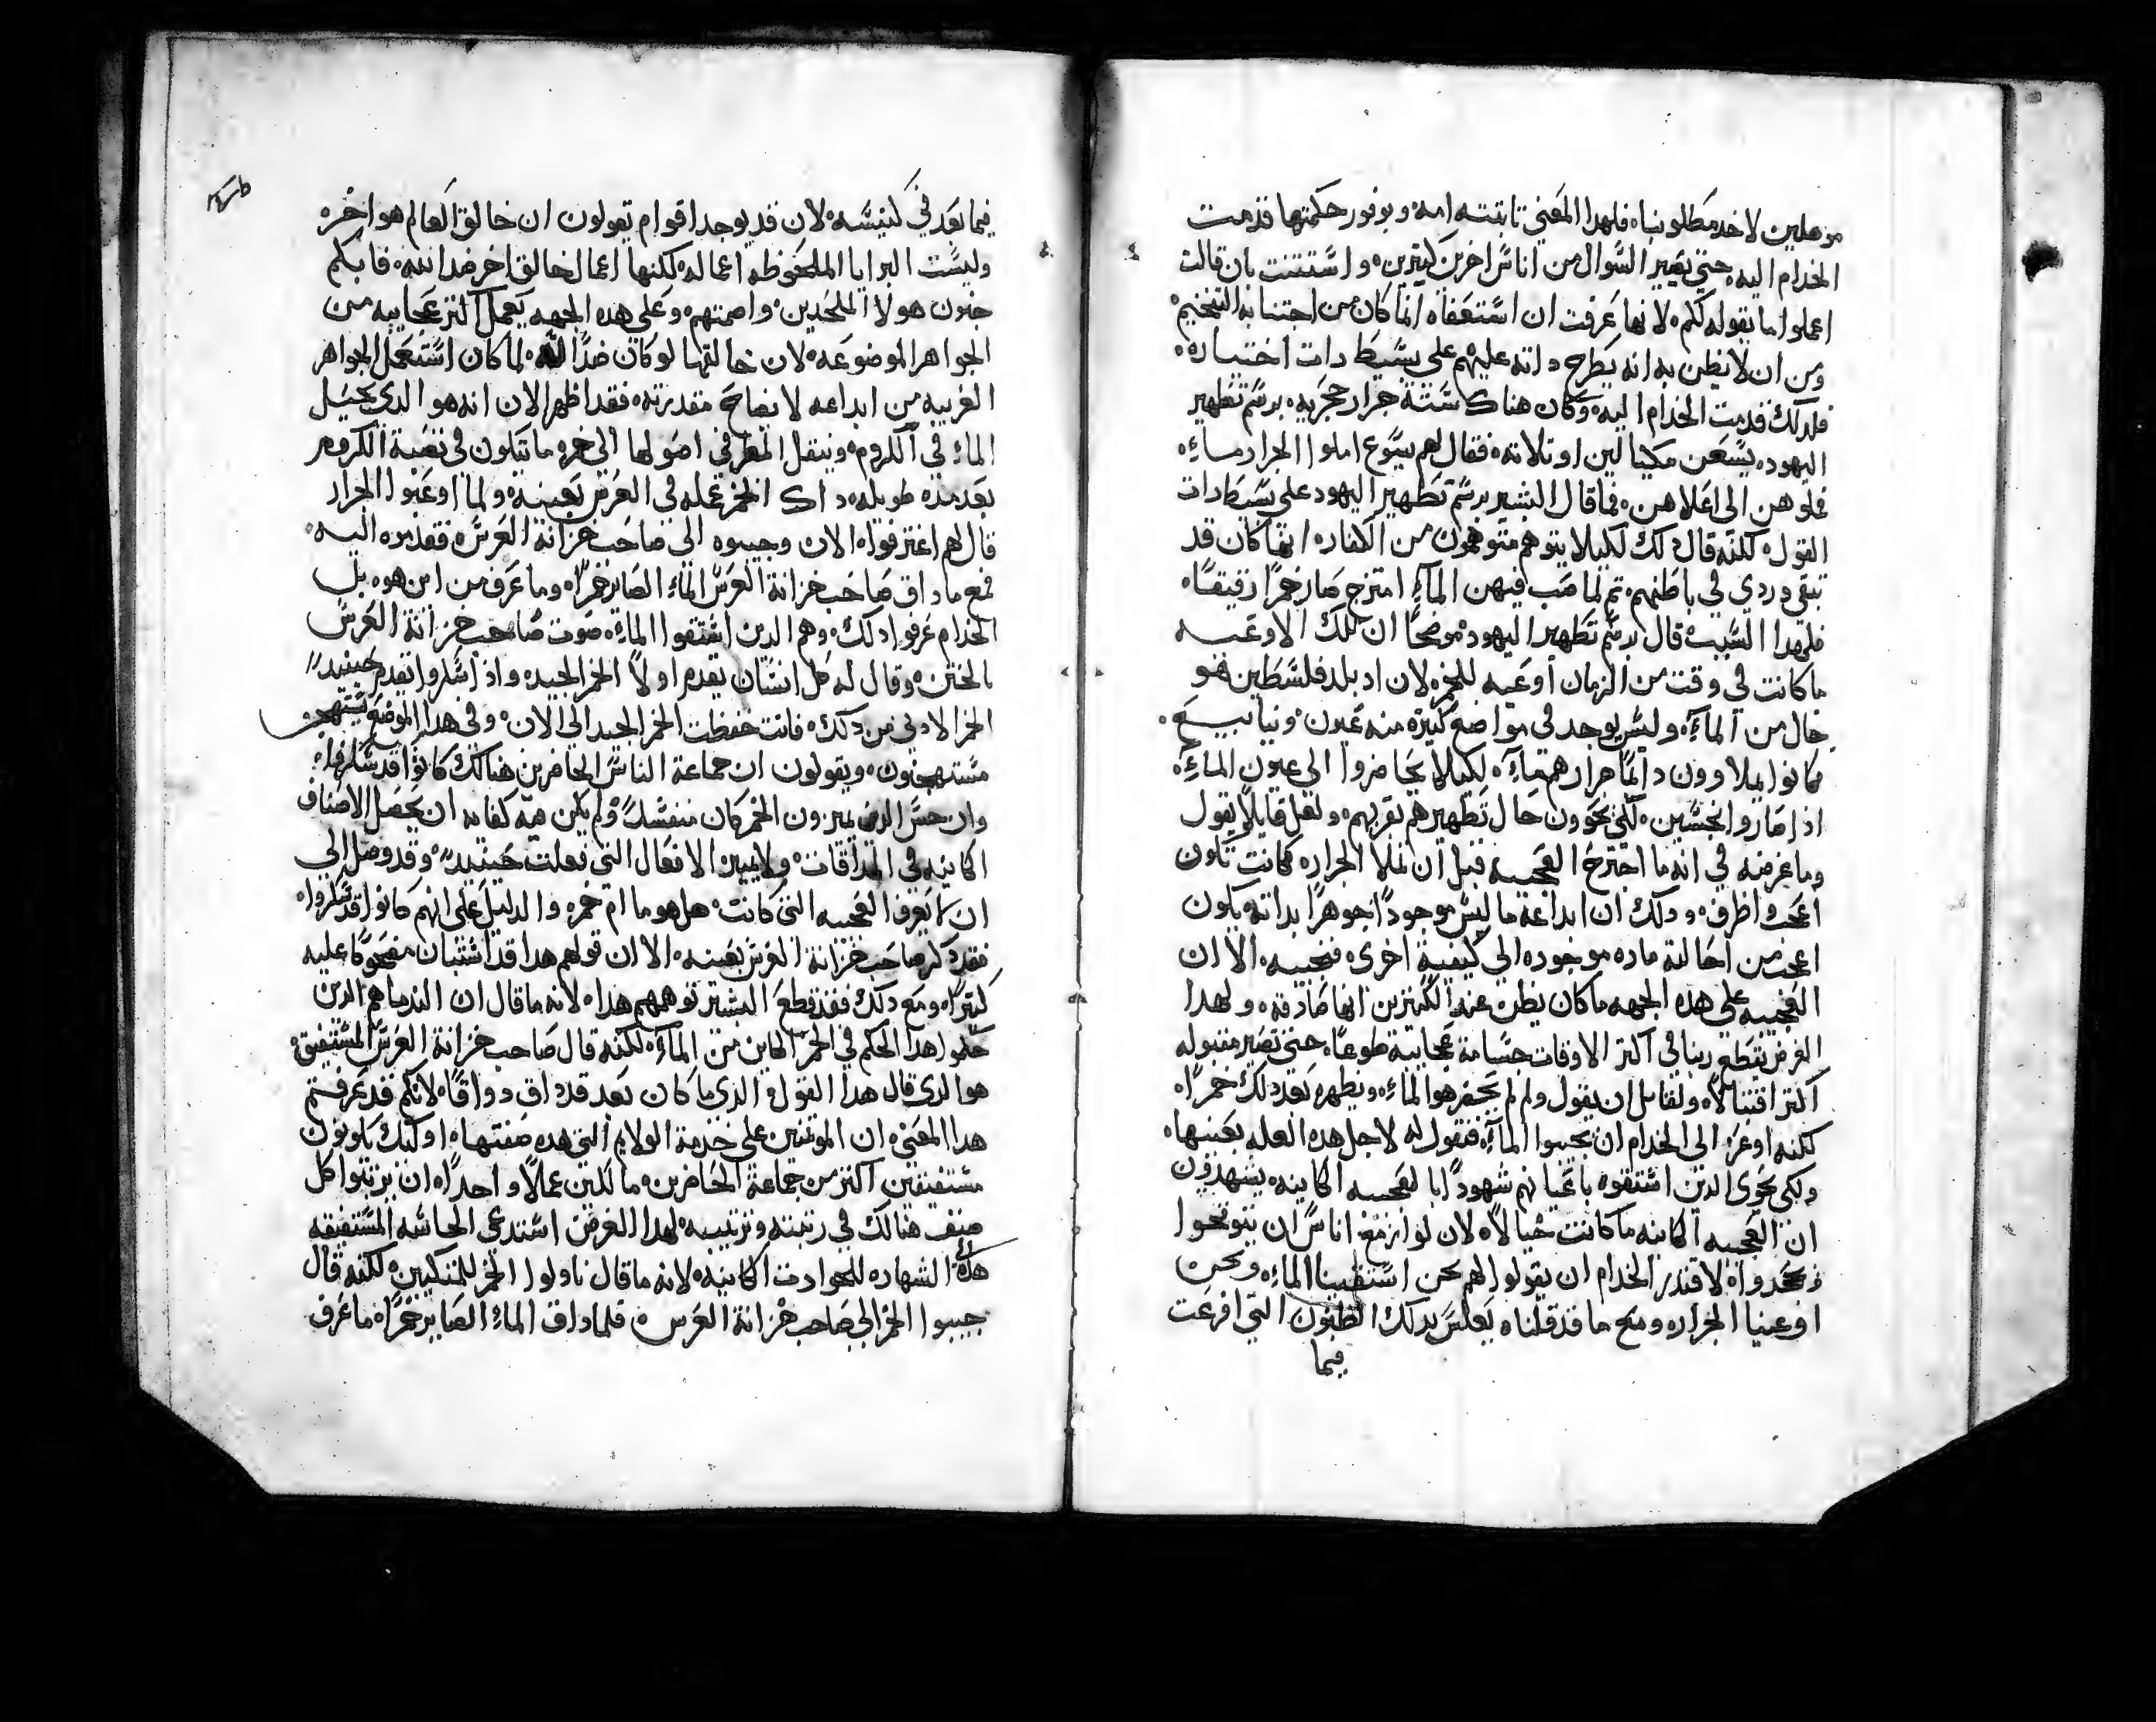 موهلين لاخد مطلوبنا، فلهدا المعني تابتته امه، وبوفور حكمتها قدمت
الخدام اليه حتي يصير السوال من اناس اخرين كتيرين، واستتنت بان قالت
اعملوا ما يقوله لكم، لانها عرفت ان استعفاه انما كان من اجتنابه التفخيم
ومن ان لا يظن به انه يطرح داته عليهم علي بسيط دات اختياره،
فلدلك قدمت الخدام اليه، وكان هناك ستة جرار حجريه، برسم تطهير
اليهود، يسعن مكيالين او تلاته، فقال لهم يسوع املوا الجرار ماء،
فملوهن الي اعلاهن، فما قال البشير برسم تطهير اليهود علي بسيط دات
القول، لكنه قال دلك لكيلا يتوهم متوهمون من الكفار، انها كان قد
تبقي دردي في باطنهم، تم لما صب فيهن الماء امتزج صار خمرًا رقيقًا،
فلهدا السبب قال برسم تطهير اليهود، موضحًا ان تلك الاوعيه
ما كانت في وقت من الزمان اوعيه للخمر، لان اد بلد فلسطين هو
خال من الماء، وليس يوجد في مواضع كتيره منه عيون، وينابيع،
كانوا يملاوون دايمًا جرارهم ماء، لكيلا يحاضروا الي عيون الماء،
ادا صاروا نجسين، لكي يحوون حال تطهيرهم بقربهم، ولعل قايلاً يقول
وما غرضه في انه ما اجترح العجيبه قبل ان تملا الجرار، كانت تكون
اعجب واظرف، ودلك ان ابداعه ما ليس موجودًا جوهرًا بداته، يكون
اعجب من احالته ماده موجوده الي كيفية اخري، فنجيبه، الا ان
العجيبه علي هده الجهه ما كان يظن عند الكتيرين انها صادقه، ولهدا
الغرض يقطع ربنا في اكتر الاوقات جسامة عجايبه طوعًا، حتي تصير مقبوله
اكتر اقتبالاً، ولقايل ان يقول ولم لم يحضر هو الماء، ويظهره بعد دلك خمرًا،
لكنه اوعز الي الخدام ان يجيبوا الماء، فنقول له لاجل هده العله بعينها،
ولكي يحوي الدين استقوه باعيانهم شهودًا بالعجيبه الكاينه، يشهدون
ان العجيبه الكاينه ما كانت خيالاً، لان لو ازمع اناس ان يتوقحوا
فيجحدوا، لاقتدر الخدام ان يقولوا لهم نحن استقينا الماء، ونحن
اوعينا الجرار، ومع ما قد قلناه يعكس بدلك الظنون التي افرعت
فيما
فيما بعد في كنيسه، لان قد يوجد اقوام يقولون ان خالق العالم هو اخر،
وليست البرايا الملحوظه اعماله، لكنها اعمال خالق اخر ضد الله، فابكم
جنون هولا الملحدين، واصمتهم، وعلي هده الجهه يعمل اكتر عجايبه من
الجواهر الموضوعه، لان خالقها لو كان ضدًا لله، لما كان استعمل الجواهر
الغريبه من ابداعه لايضاح مقدرته، فقد اظهر الان انه هو الدي يحيل
الماء في الكروم، وينقل المطر في اصولها الي خمر، ما يتكون في نصبة الكروم
بعد مده طويله، داك انجز عمله في العرس بعينه، ولما اوعبوا الجرار
قال لهم اغترفوا، الان وجيبوه الي صاحب خزانة العرس، فقدموه اليه،
فمع ما داق صاحب خزانة العرس الماء الصاير خمرًا، وما عرف من اين هو، بل
الخدام عرفوا دلك، وهم الدين استقوا الماء، صوت صاحب خزانة العرس
بالختن، وقال له كل انسان يقدم اولاً الخمر الجيد، واذا سكروا يقدم حينيد
الخمر الادني من دلك، فانت حفظت الخمر الجيد الي الان، وفي هدا الموضع يستهجن
مستهجنون، ويقولون ان جماعة الناس الحاضرين هنالك كانوا قد سكروا،
وان حس الدين يميزون الخمر كان منفسدًا، ولم يكن فيه كفايه ان يحصل الاصناف
الكاينه في المداقات، ولا يميز الافعال التي فعلت حينيد، وقد وصل الي
ان لا يعرف العجيبه التي كانت، هل هو ما ام خمر، والدليل علي انهم كانوا قد سكروا،
فقد دكر صاحب خزانة العرس بعينه، الا ان قولهم هدا قد استبان مضحوكًا عليه
كتيرًا، ومع دلك فقد قطع البشير توهمهم هدا، لانه ما قال ان الندما هم الدين
حكموا هدا الحكم في الخمر الكاين من الماء، لكنه قال صاحب خزانة العرس المستفيق،
هو الدي قال هدا القول، الدي ما كان بعد قد داق دواقًا، لانكم قد عرفتم
هدا المعني، ان الموتمنين علي خدمة الولايم التي هده صفتها، اوليك يكونون
مستفيقين اكتر من جماعة الحاضرين، مالكين عملاً واحدًا، ان يرتبوا كل
صنف هنالك في رتبته وترتيبه، لهدا الغرض استدعي الحاسه المستفيقه
هده الشهاده للحوادت الكاينه، لانه ما قال ناولوا الخمر للمتكيين، لكنه قال
جيبوا الخمر الي صاحب خزانة العرس، فلما داق الماء الصاير خمرًا، ما عرف